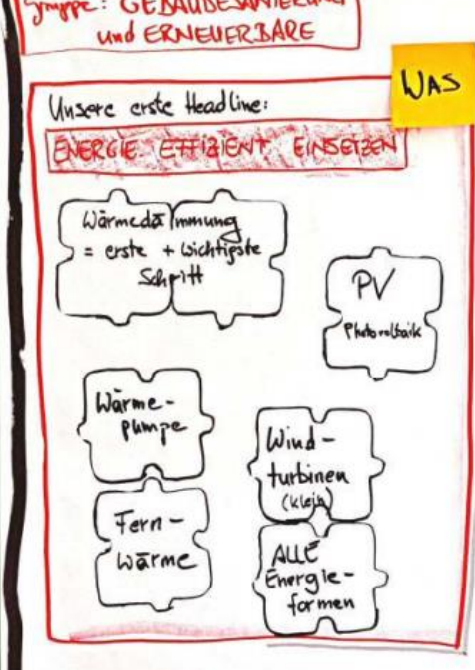 Gruppe: GEBÄUDESANIERUNG
und ERNEUERBARE
WAS
Unsere erste Headline:
ENERGIE EFFIZIENT EINSETZEN
Wärmedämmung
= erste + wichtigste
Schritt
PV
Photovoltaik
Wärme-
pumpe
Wind-
turbinen
(klein)
Fern-
wärme
ALLE
Energie-
formen